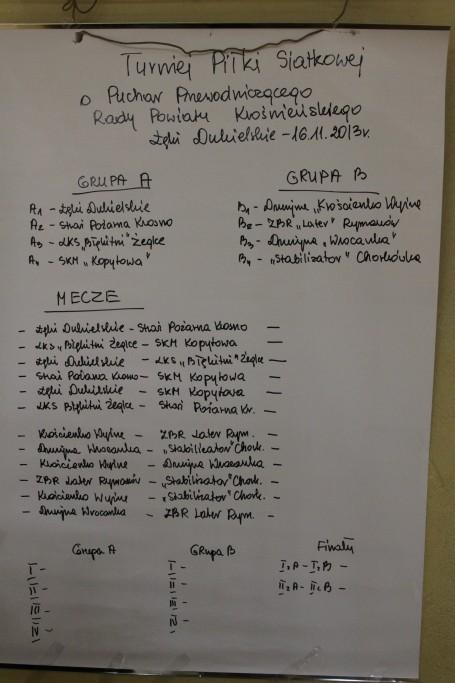 Turniej Piłki Siatkowej
o Puchar Przewodniczącego
Rady Powiatu Krośnieńskiego
Łęki Dukielskie - 16.11.2013r.
GRUPA A
A1 - Łęki Dukielskie
A2 - Straż Pożarna Krosno
A3 - LKS „Błękitni" Żeglce
A4 - SKM „Kopytowa"
GRUPA B
B1 - Drużyna „Krościenko Wyżne
B2 - ZBR „Later" Rymanów
B3 - Drużyna „Wrocanka"
B4 - „Stabilizator" Chorkówka
MECZE
- Łęki Dukielskie - Straż Pożarna Krosno -
- LKS „Błękitni Żeglce - SKM Kopytowa -
- Łęki Dukielskie - LKS „Błękitni" Żeglce -
- Straż Pożarna Krosno - SKM Kopytowa -
- Łęki Dukielskie - SKM Kopytowa -
- LKS Błękitni Żeglce - Straż Pożarna Kr. -
- Krościenko Wyżne - ZBR Later Rym. -
- Drużyna Wrocanka - „Stabilizator" Chork. -
- Krościenko Wyżne - Drużyna Wrocanka -
- ZBR Later Rymanów - „Stabilizator" Chork. -
- Krościenko Wyżne - „Stabilizator" Chork. -
- Drużyna Wrocanka - ZBR Later Rym. -
Grupa A
I -
II -
III -
IV -
GRupa B
I -
II -
III -
IV -
Finały
I z A - I z B -
II z A - II z B -